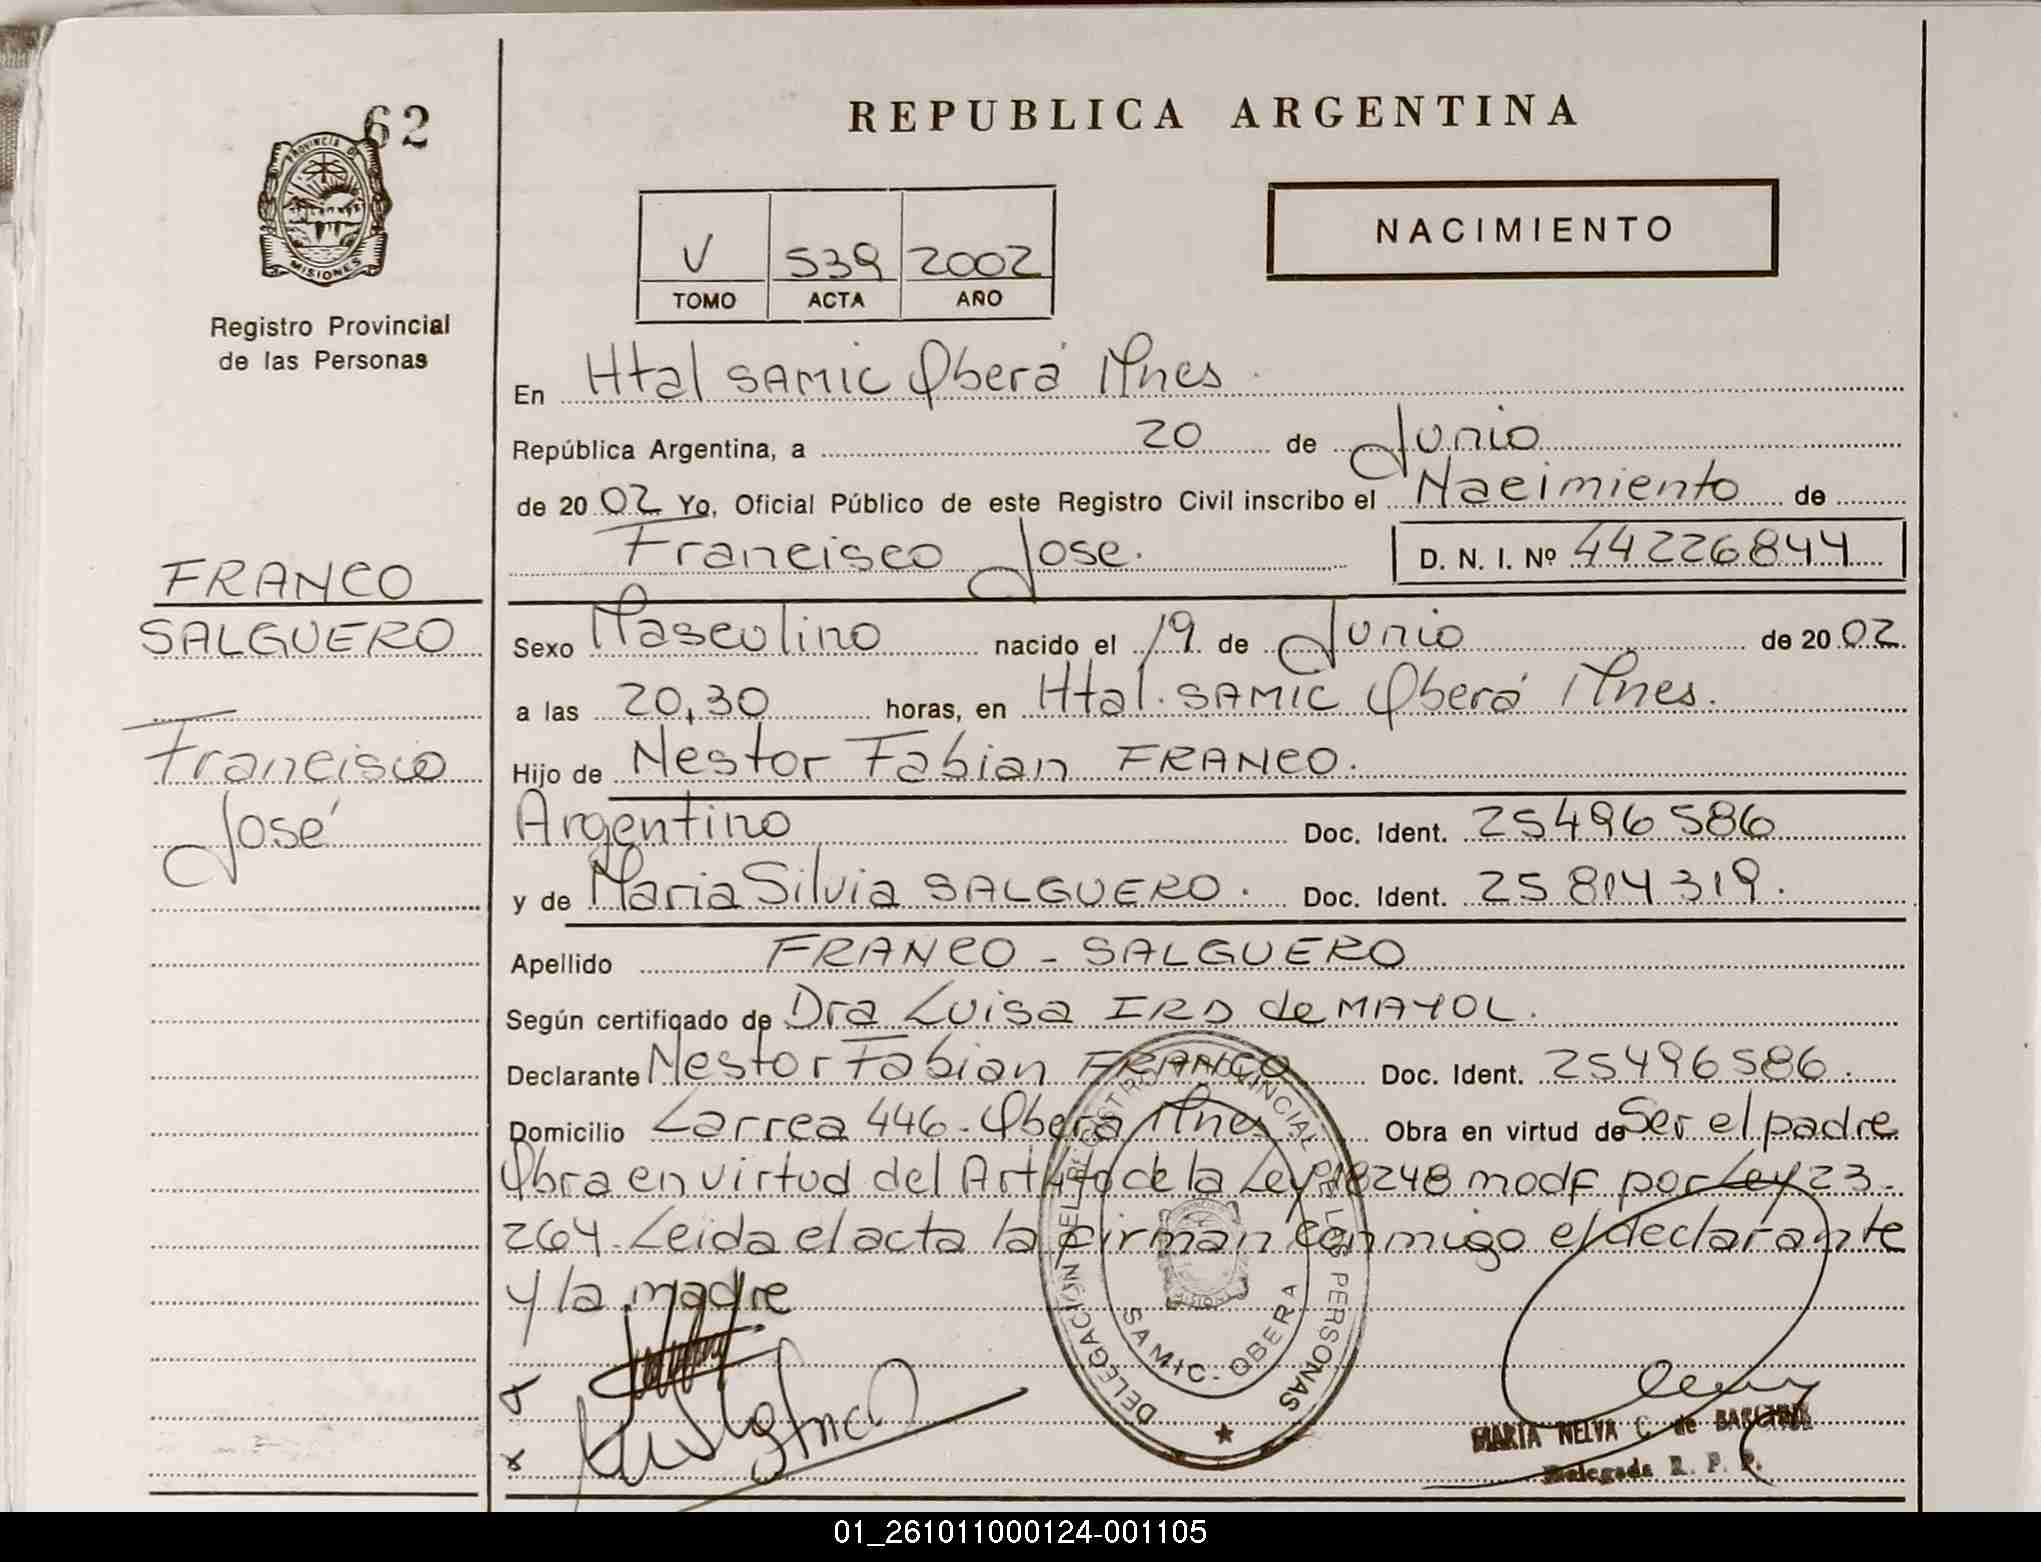 62
PROVINCIA DE
MISIONES
Registro Provincial
de las Personas
FRANCO
SALGUERO
Francisco
José
REPUBLICA ARGENTINA
NACIMIENTO
V 539 2002
TOMO ACTA AÑO
En Htal SAMIC Oberá Mnes.
República Argentina, a 20 de Junio
de 2002 Yo, Oficial Público de este Registro Civil inscribo el Nacimiento de
Francisco Jose. D. N. I. Nº 44226844
Sexo Masculino nacido el 19 de Junio de 2002.
a las 20,30 horas, en Htal. SAMIC Oberá Mnes.
Hijo de Nestor Fabian FRANCO.
Argentino Doc. Ident. 25496586
y de Maria Silvia SALGUERO. Doc. Ident. 25 814 319.
Apellido FRANCO - SALGUERO
Según certificado de Dra Luisa IRD de MAYOL.
Declarante Nestor Fabian FRANCO Doc. Ident. 25496586.
Domicilio Larrea 446 - Oberá Mnes Obra en virtud de Ser el padre
Obra en virtud del Art 4to de la Ley 18248 modf por Ley 23-
264. Leida el acta la firman conmigo el declarante
y la madre
DELEGACION DEL REGISTRO PROVINCIAL DE LAS PERSONAS
SAMIC. OBERA
MARIA NELVA C. de
Delegada R. P. P.
01_261011000124-001105